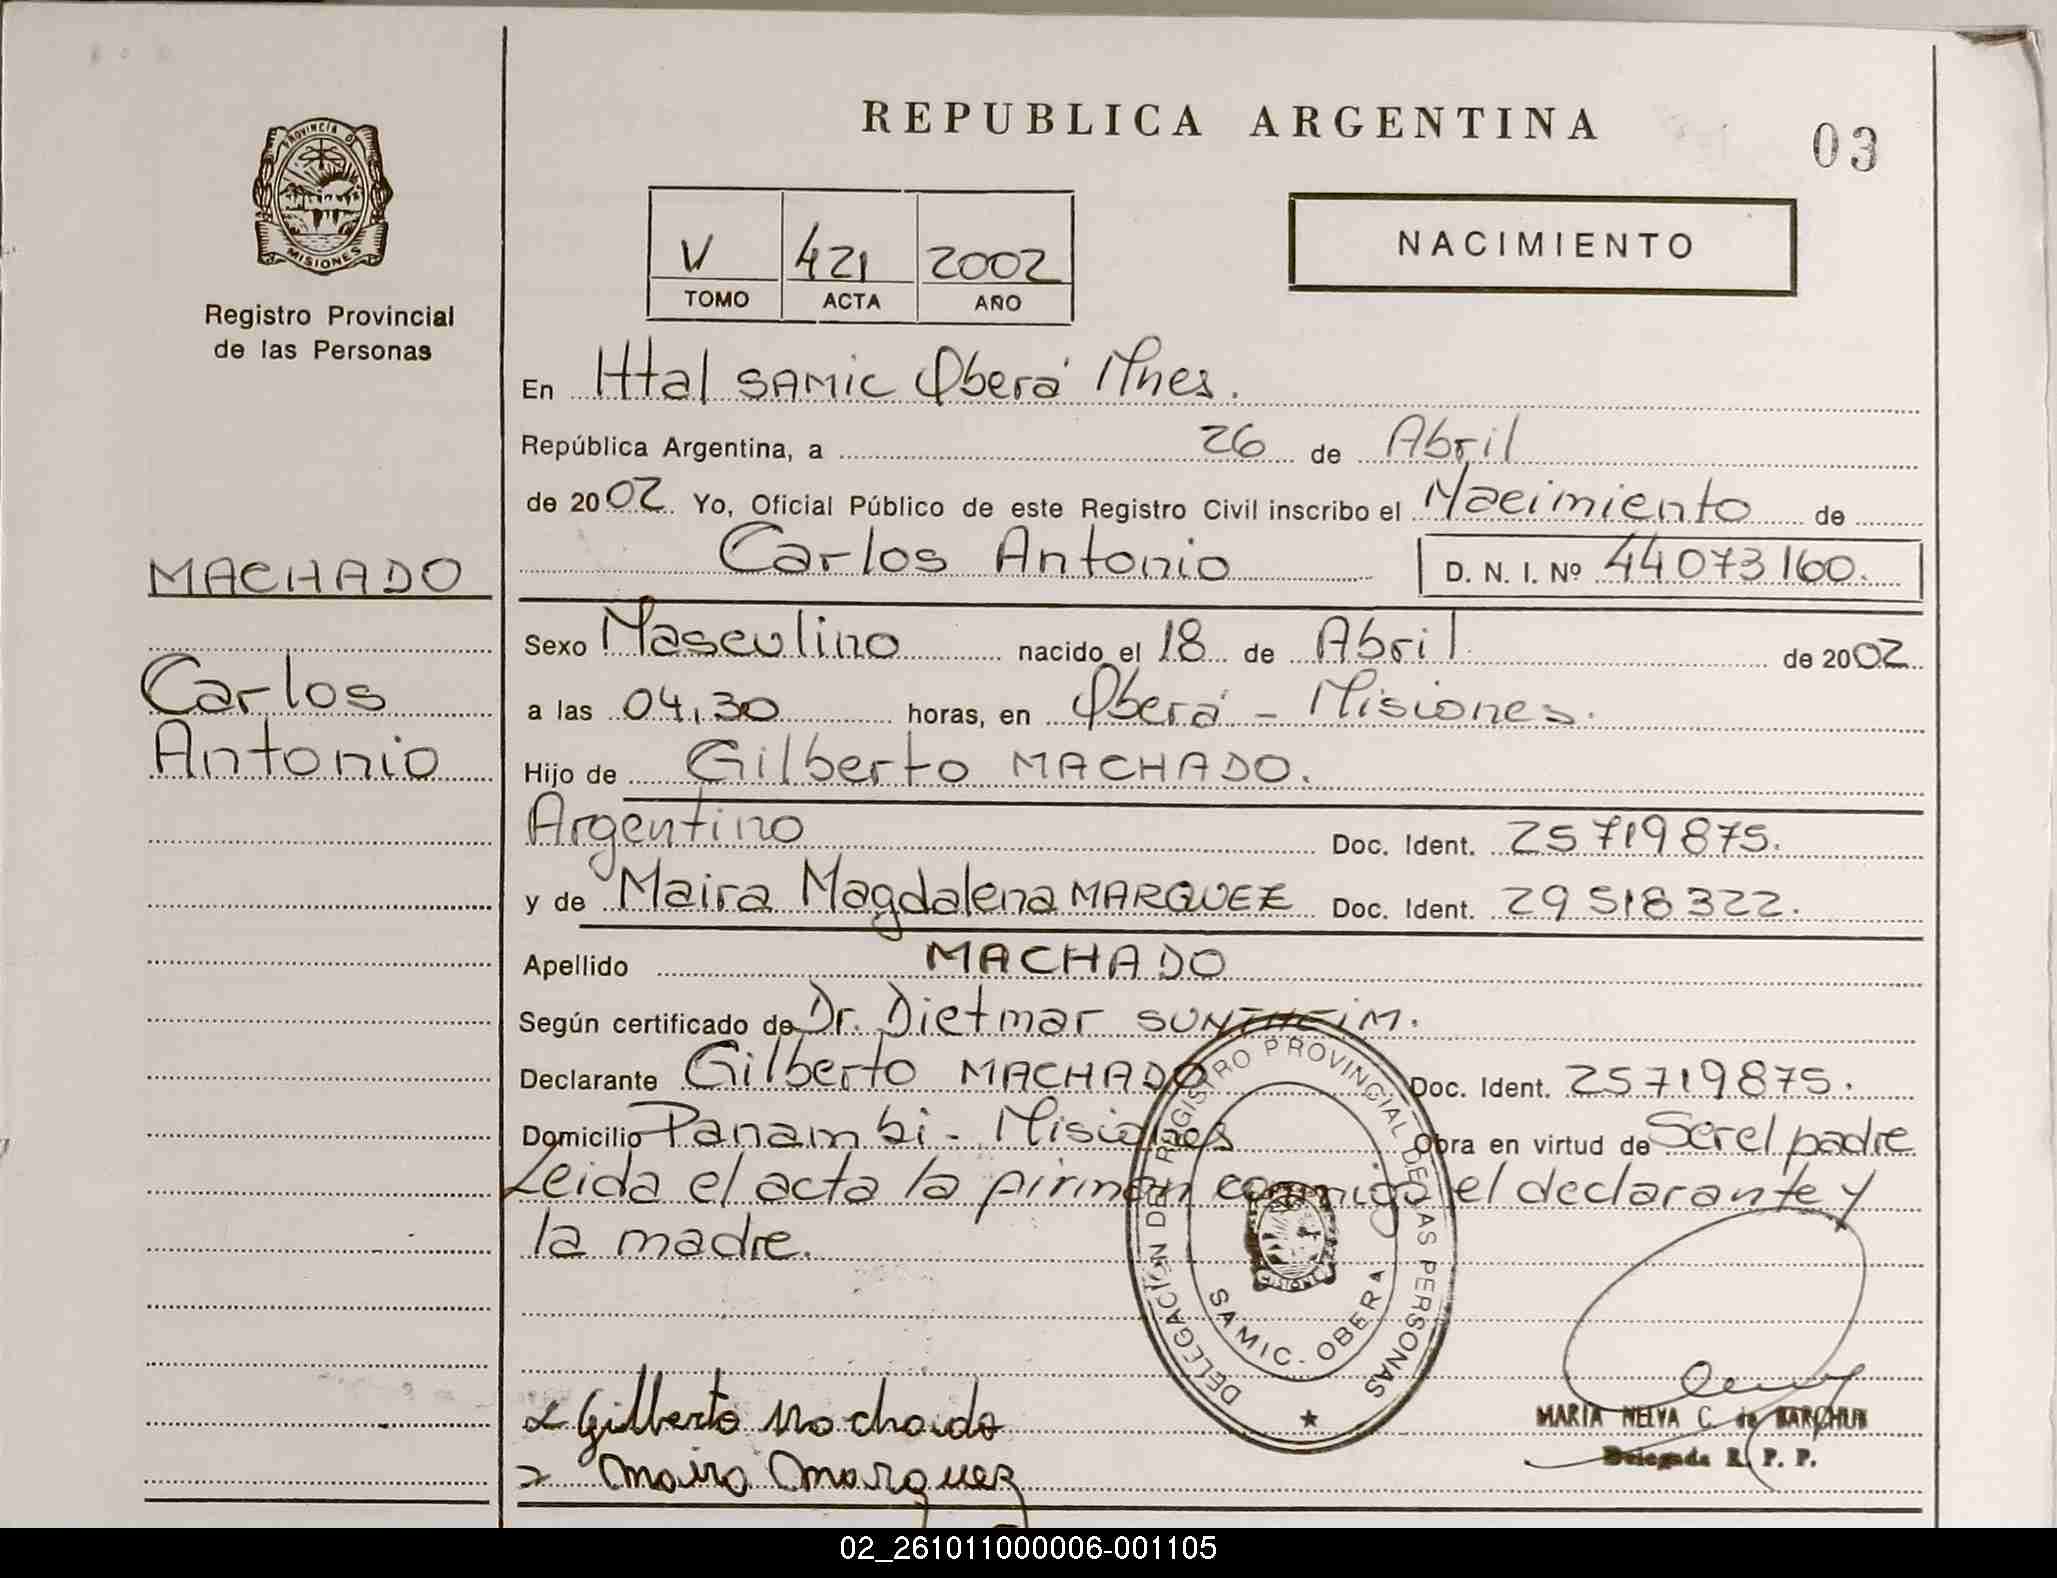 PROVINCIA DE
MISIONES
Registro Provincial
de las Personas
MACHADO
Carlos
Antonio
REPUBLICA ARGENTINA
03
V 421 2002
TOMO ACTA AÑO
NACIMIENTO
En Htal SAMIC Oberá Mnes.
República Argentina, a 26 de Abril
de 2002. Yo, Oficial Público de este Registro Civil inscribo el Nacimiento de
Carlos Antonio D. N. I. Nº 44073160.
Sexo Masculino nacido el 18 de Abril de 2002
a las 04,30 horas, en Oberá - Misiones.
Hijo de Gilberto MACHADO.
Argentino Doc. Ident. 25719875.
y de Maira Magdalena MARQUEZ Doc. Ident. 29518322.
Apellido MACHADO
Según certificado de Dr. Dietmar SUNTHEIM.
Declarante Gilberto MACHADO Doc. Ident. 25719875.
Domicilio Panambi - Misiones Obra en virtud de Ser el padre
Leida el acta la firman conmigo el declarante y
la madre.
DELEGACIÓN DEL REGISTRO PROVINCIAL DE LAS PERSONAS
SAMIC - OBERA
Gilberto Machado
Maira Marquez
MARIA NELVA C. de BARCHUK
Delegada R. P. P.
02_261011000006-001105